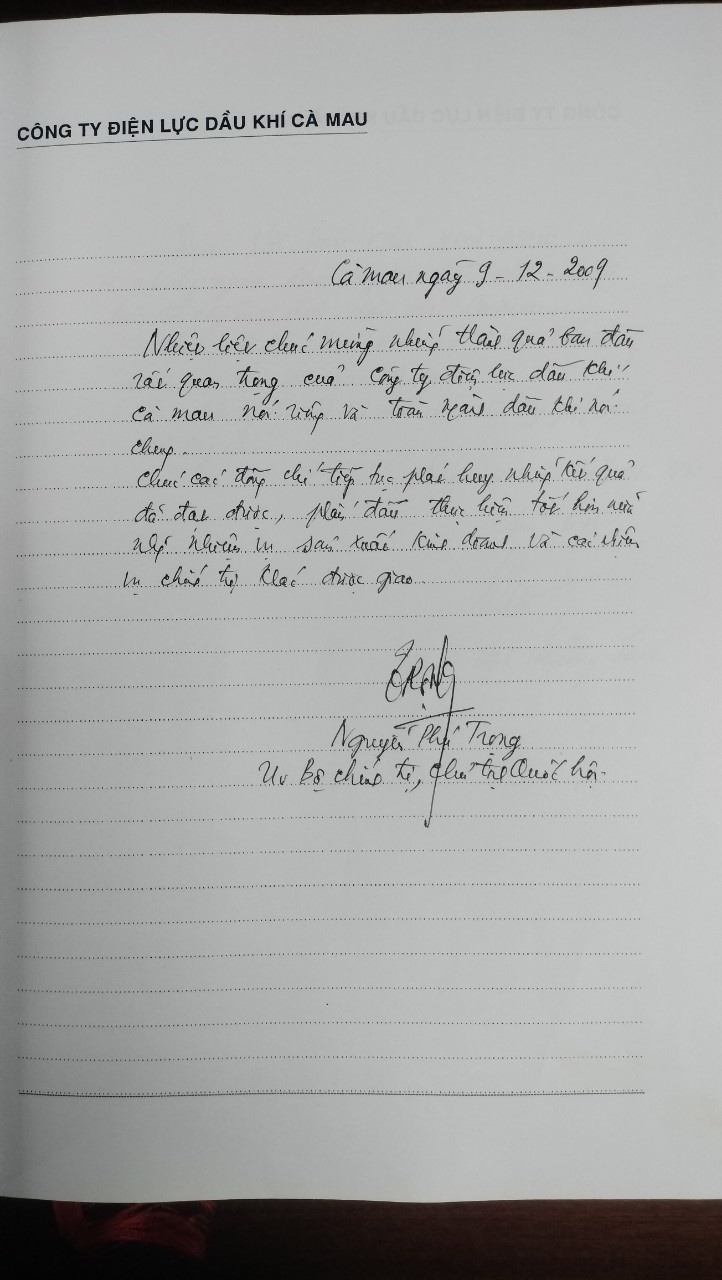 CÔNG TY ĐIỆN LỰC DẦU KHÍ CÀ MAU
Cà mau ngày 9 - 12 - 2009
Nhiệt liệt chúc mừng những thành quả ban đầu
rất quan trọng của Công ty điện lực dầu khí
Cà mau nói riêng và toàn ngành dầu khí nói
chung.
Chúc các đồng chí tiếp tục phát huy những kết quả
đã đạt được, phấn đấu thực hiện tốt hơn nữa
nhiệm vụ sản xuất kinh doanh và các nhiệm
vụ chính trị khác được giao
TRỌNG
Nguyễn Phú Trọng
Uv Bộ chính trị, Chủ tịch Quốc hội.